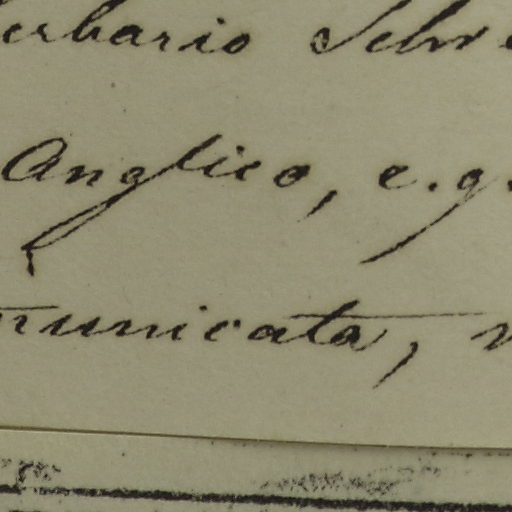 erbario Schw
Anglico, e.g.
municata,